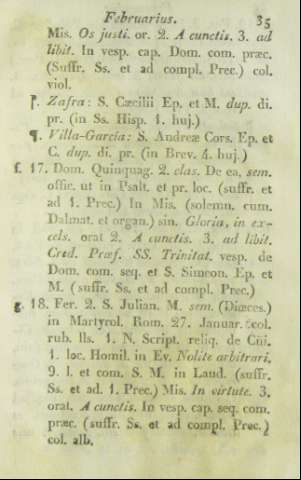 Februarius. 35
Mis. Os justi. or. 2. A cunctis. 3. ad
libit. In vesp. cap. Dom. com. præc.
(Suffr. Ss. et ad compl. Prec.) col.
viol.
¶. Zafra: S. Cæcilii Ep. et M. dup. di.
pr. (in Ss. Hisp. 1. huj.)
¶. Villa-Garcia: S. Andreæ Cors. Ep. et
C. dup. di. pr. (in Brev. 4. huj.)
f. 17. Dom. Quinquag. 2. clas. De ea, sem.
offic. ut in Psalt. et pr. loc. (suffr. et
ad 1. Prec.) In Mis. (solemn. cum
Dalmat. et organ.) sin. Gloria, in ex-
cels. orat 2. A cunctis. 3. ad libit.
Cred. Præf. SS. Trinitat. vesp. de
Dom. com. seq. et S. Simeon. Ep. et
M. (suffr. Ss. et ad compl. Prec.)
g. 18. Fer. 2. S. Julian. M. sem. (Diœces.)
in Martyrol. Rom. 27. Januar. col.
rub. lls. 1. N. Script. reliq. de Cũi.
1. loc. Homil. in Ev. Nolite arbitrari.
9. l. et com. S. M. in Laud. (suffr.
Ss. et ad. 1. Prec.) Mis. In virtute. 3.
orat. A cunctis. In vesp. cap. seq. com.
præc. (suffr. Ss. et ad compl. Prec.)
col. alb.